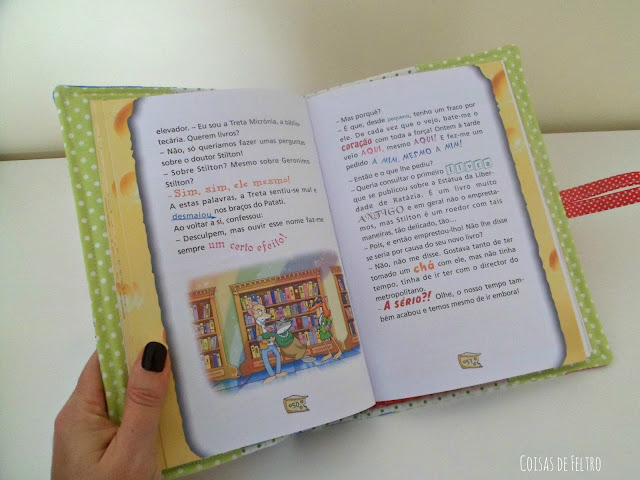 elevador. – Eu sou a Treta Micrónia, a biblio-
tecária. Querem livros?
– Não, só queríamos fazer umas perguntas
sobre o doutor Stilton!
– Sobre Stilton? Mesmo sobre Geronimo
Stilton?
– Sim, sim, ele mesmo!
A estas palavras, a Treta sentiu-se mal e
desmaiou nos braços do Patati.
Ao voltar a si, confessou:
– Desculpem, mas ouvir esse nome faz-me
sempre um certo efeito!
– Mas porquê?
– É que, desde pequena, tenho um fraco por
ele. De cada vez que o vejo, bate-me o
coração com toda a força! Ontem à tarde
veio AQUI, mesmo AQUI! E fez-me um
pedido A MIM, MESMO A MIM!
– Então e o que lhe pediu?
– Queria consultar o primeiro livro
que se publicou sobre a Estátua da Liber-
dade de Ratázia. É um livro muito
ANTIGO e em geral não o empresta-
mos, mas Stilton é um roedor com tais
maneiras, tão delicado, tão...
– Pois, e então emprestou-lho! Não lhe disse
se seria por causa do seu novo livro?
– Não, não me disse. Gostava tanto de ter
tomado um chá com ele, mas não tinha
tempo, tinha de ir ter com o director do
metropolitano.
– A SÉRIO?! Olhe, o nosso tempo tam-
bém acabou e temos mesmo de ir embora!
COISAS DE FELTRO